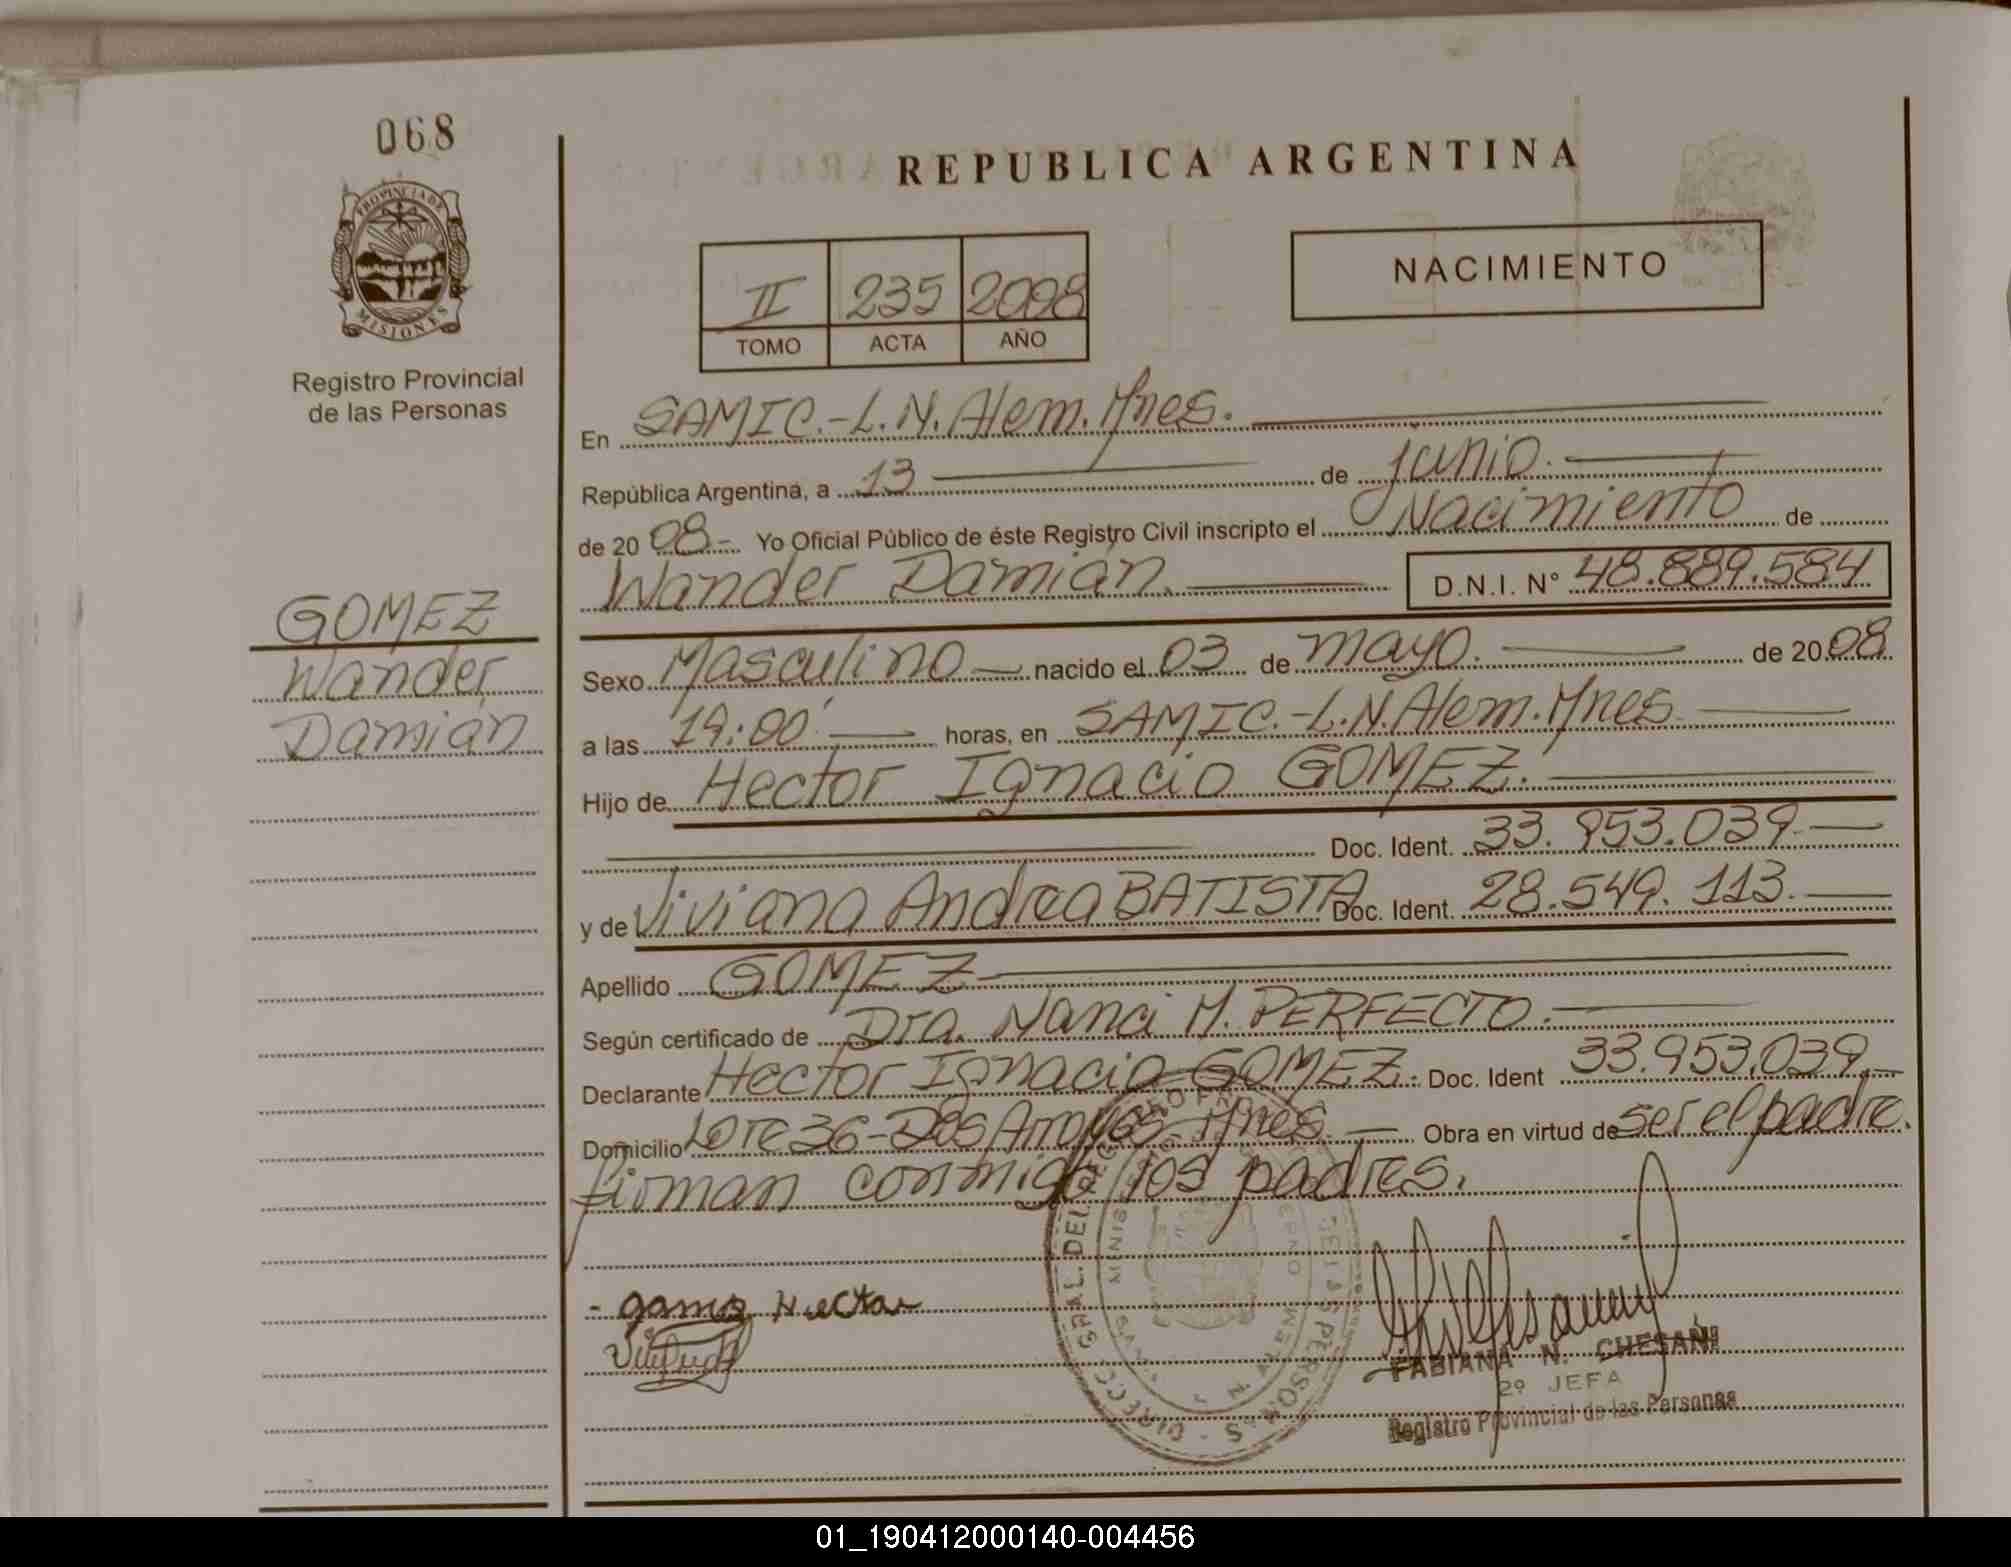 068
PROVINCIA DE
MISIONES
Registro Provincial
de las Personas
REPUBLICA ARGENTINA
II 235 2008
TOMO ACTA AÑO
NACIMIENTO
En SAMIC.-L.N.Alem.Mnes.
República Argentina, a 13 de junio.
de 2008.- Yo Oficial Público de éste Registro Civil inscripto el Nacimiento de
Wander Damián. D.N.I. N° 48.889.584
GOMEZ
Wander
Damián
Sexo Masculino nacido el 03 de mayo. de 2008
a las 19:00' horas, en SAMIC.-L.N.Alem.Mnes
Hijo de Hector Ignacio GOMEZ.
Doc. Ident. 33.953.039.
y de Viviana Andrea BATISTA Doc. Ident. 28.549.113.
Apellido GOMEZ
Según certificado de Dra. Nanci M. PERFECTO.
Declarante Hector Ignacio GOMEZ. Doc. Ident 33.953.039.
Domicilio Lote 36-Dos Arroyos-Mnes. Obra en virtud de ser el padre.
firman conmigo los padres.
- gomez Hector
FABIANA N. CHESANI
2º JEFA
Registro Provincial de las Personas
01_190412000140-004456